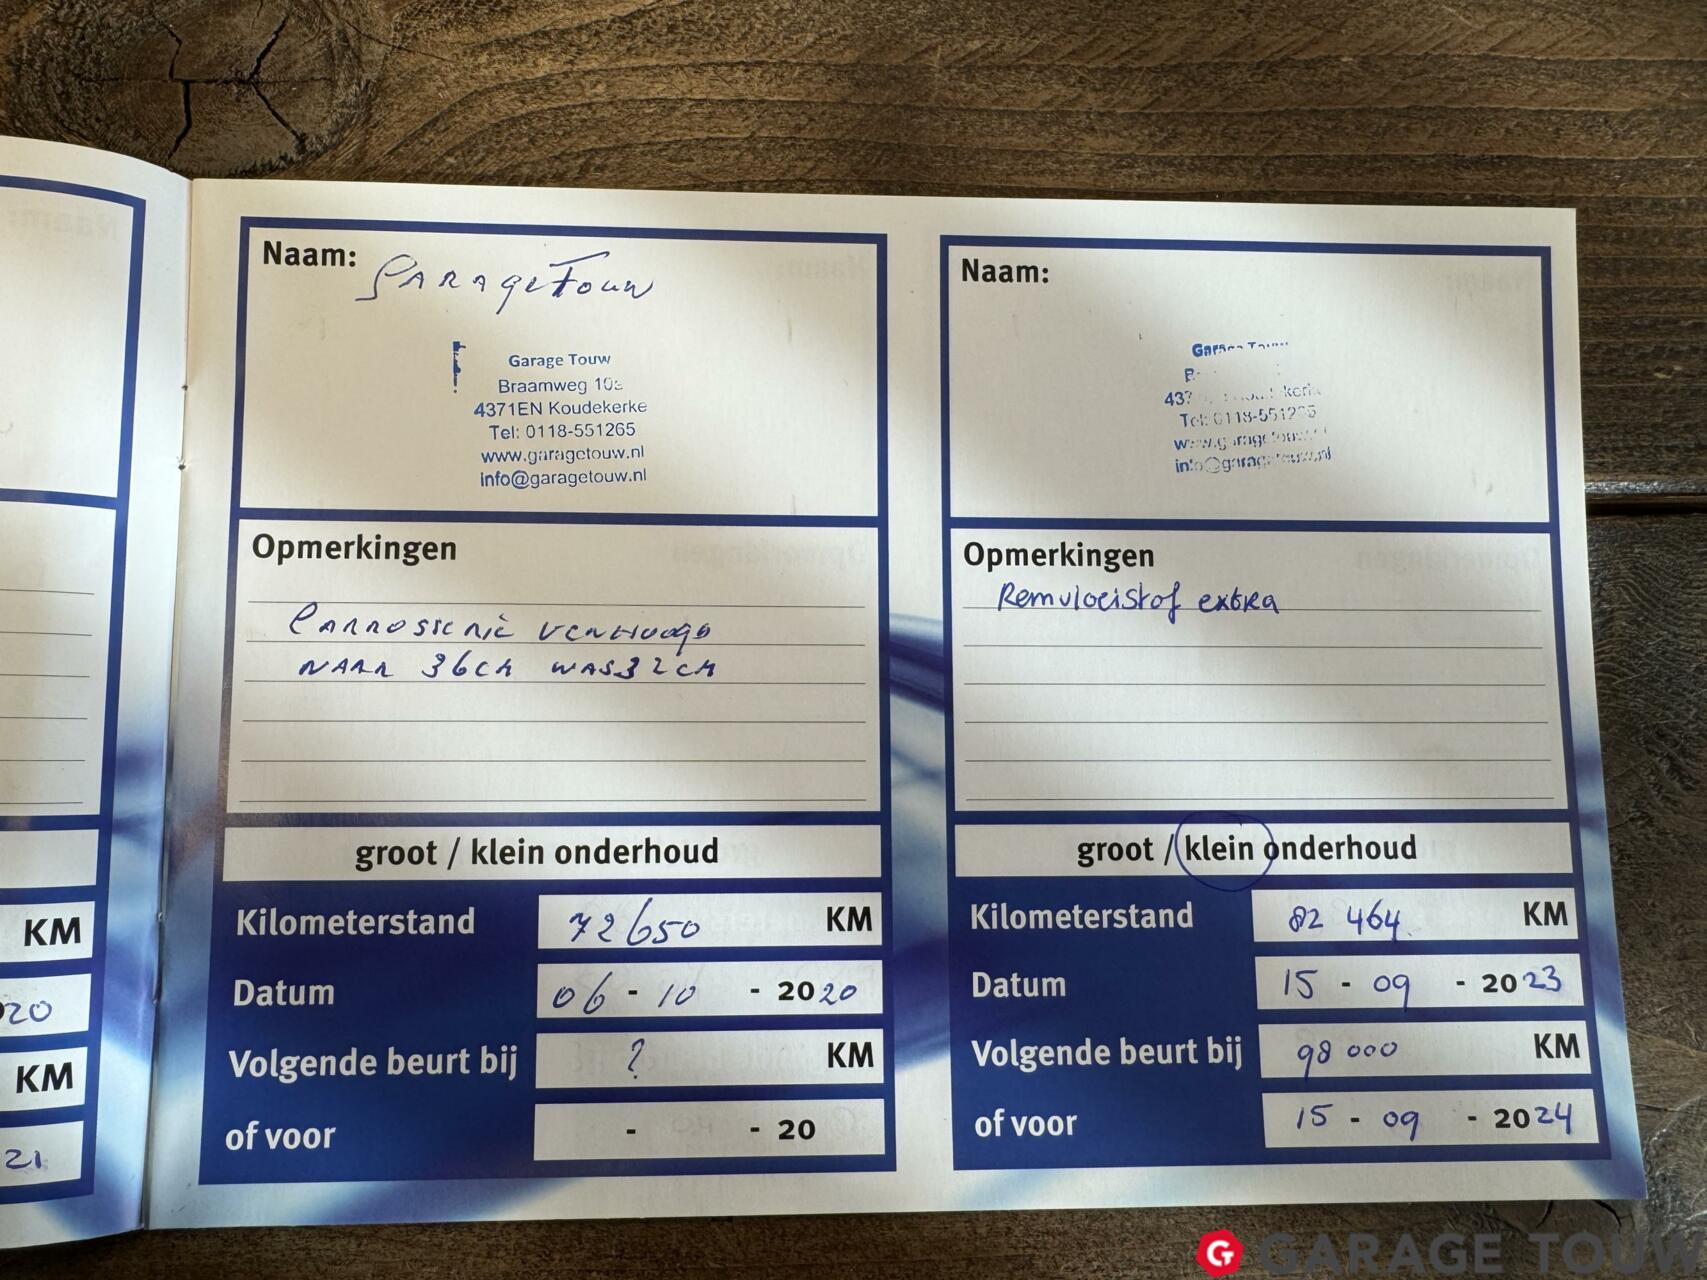 20
KM
21
KM
Naam:
Garage Touw
Garage Touw
Braamweg
4371EN Koudekerke
Tel: 0118-551265
www.garagetouw.nl
info@garagetouw.nl
Opmerkingen
Carrosserie verhoogd
naar 36cm was 32cm
groot / klein onderhoud
Kilometerstand 72650 KM
Datum 06 - 10 - 2020
Volgende beurt bij ? KM
of voor - - 20
Naam:
Garage Touw
Tel: 0118-551265
www.garagetouw.nl
info@garagetouw.nl
Opmerkingen
Remvloeistof extra
groot / klein onderhoud
Kilometerstand 82 464 KM
Datum 15 - 09 - 2023
Volgende beurt bij 98 000 KM
of voor 15 - 09 - 2024
GARAGE TOUW